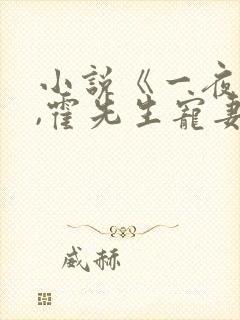 小说《一夜
,霍先生宠妻
威赫